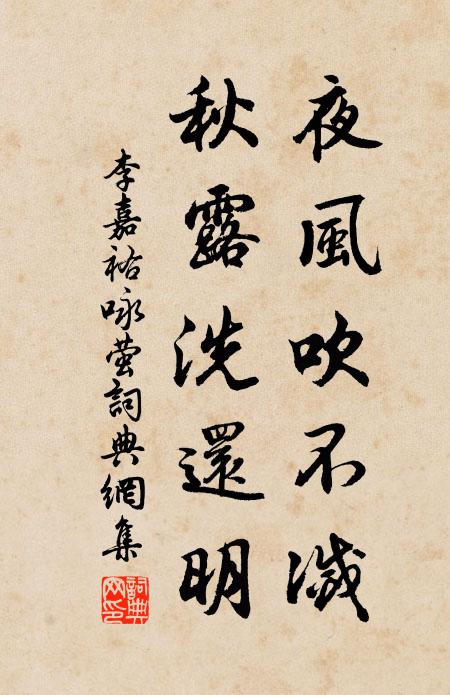 夜風吹不滅
秋露洗還明
李嘉祐咏萤詞典網集
詞典网印